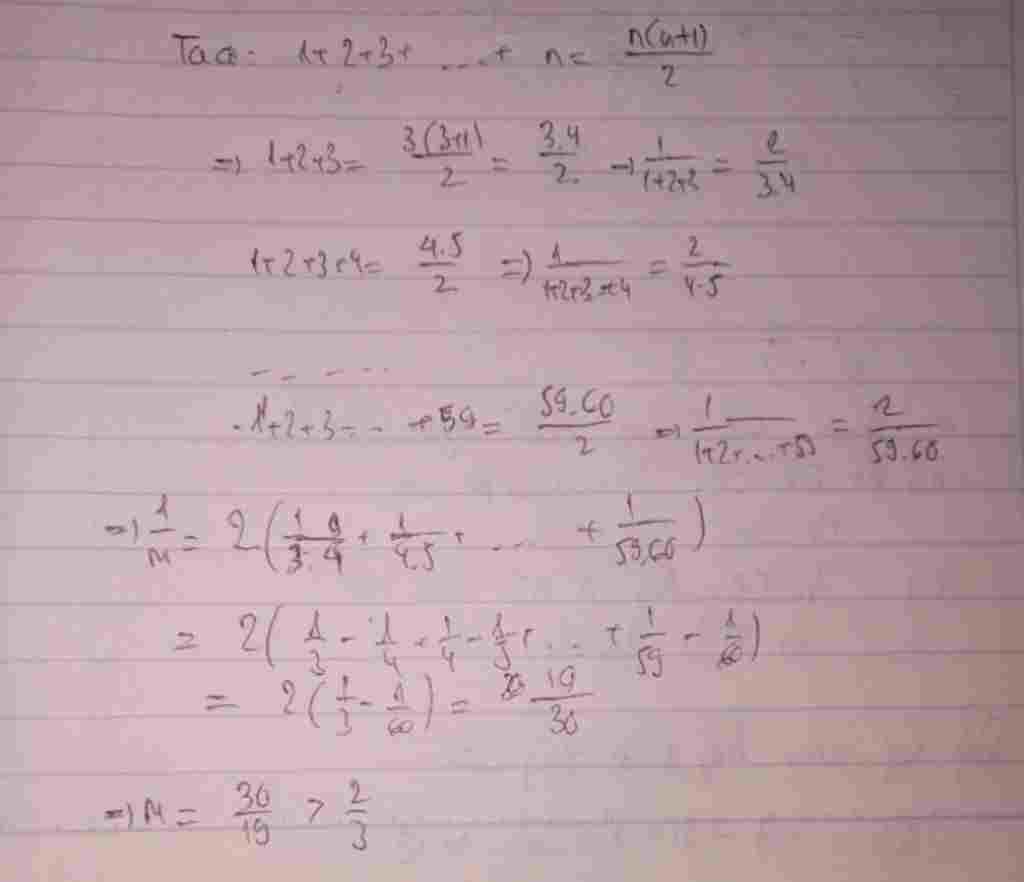 Ta có: 1+2+3+ ....+ n = n(n+1)/2
=> 1+2+3 = 3(3+1)/2 = 3.4/2. → 1/1+2+3 = 2/3.4
1+2+3+4 = 4.5/2 => 1/1+2+3+4 = 2/4.5
......
1+2+3+... +59 = 59.60/2 => 1/1+2+...+59 = 2/59.60
=> 1/M = 2(1/3.4 + 1/4.5 + ... + 1/59.60)
= 2(1/3 - 1/4 + 1/4 - 1/5 + ... + 1/59 - 1/60)
= 2(1/3 - 1/60) = 19/30
=> M = 30/19 > 2/3